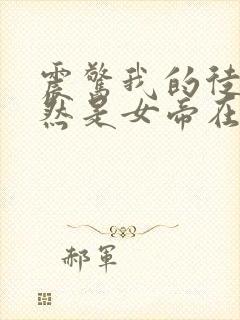 震驚我的徒
然是女帝在
郝軍